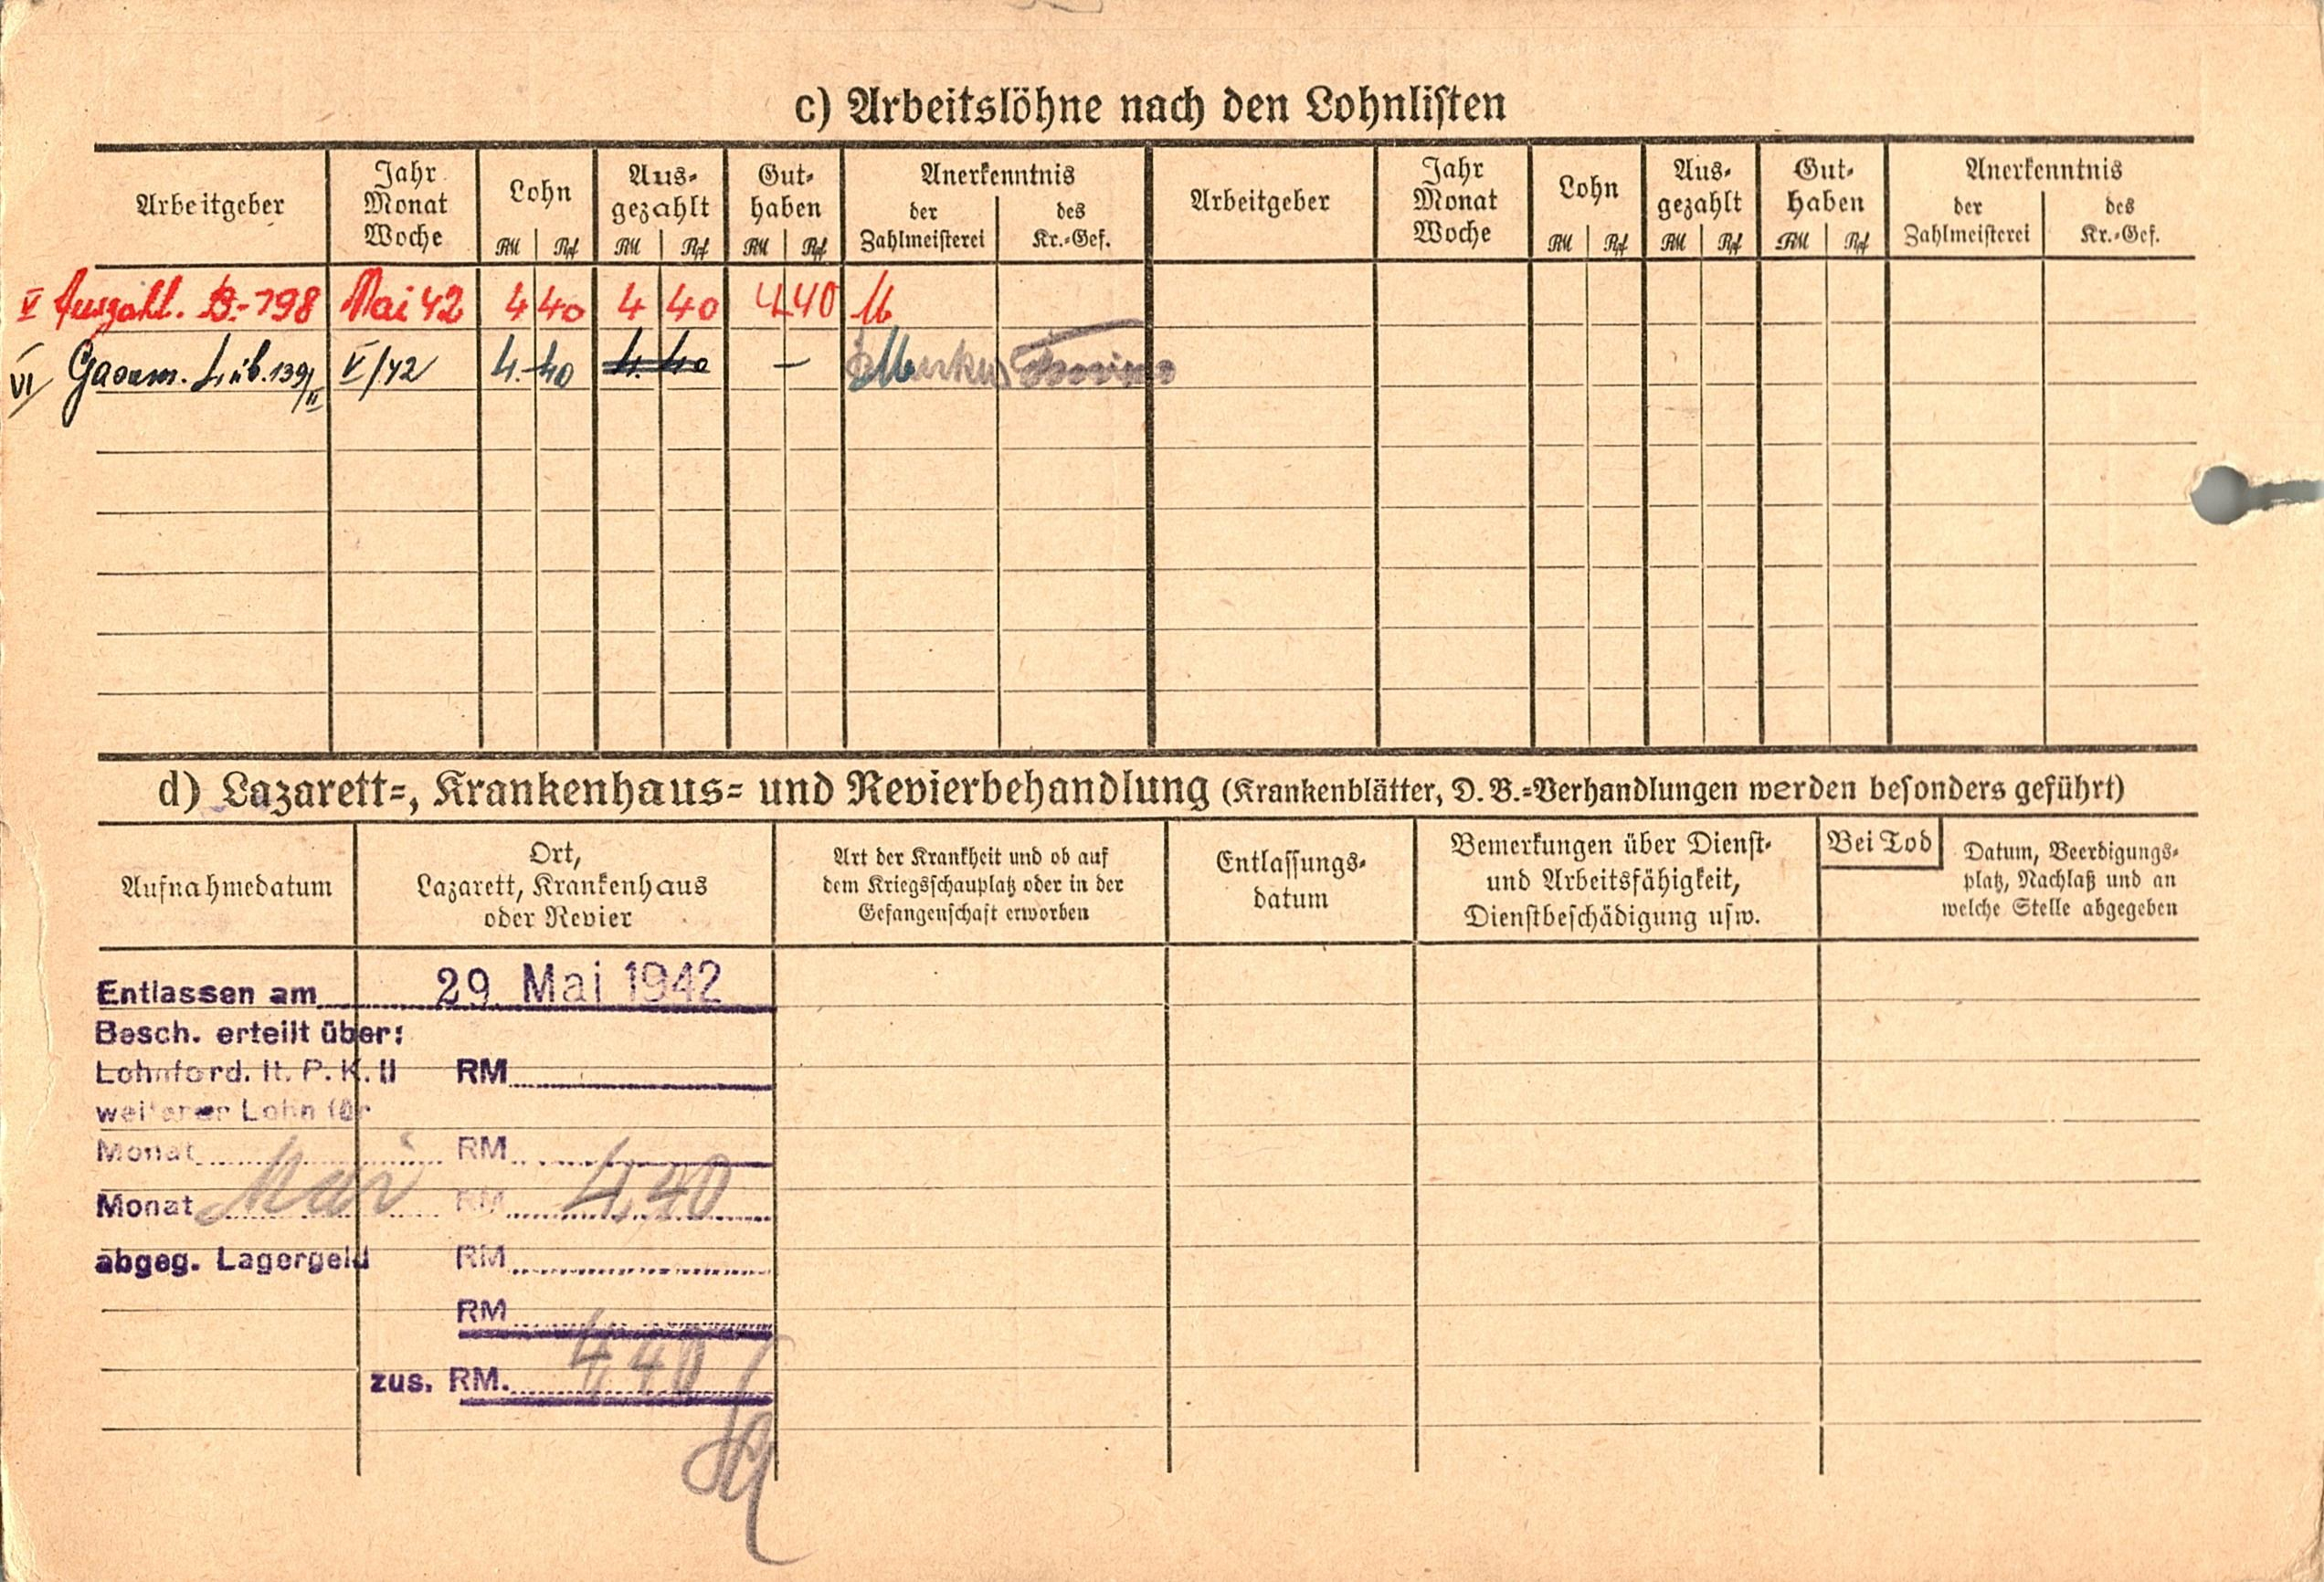 c) Arbeitslöhne nach den Lohnlisten
Arbeitgeber
Jahr
Monat
Woche
Lohn
RM Rpf
Aus-
gezahlt
RM Rpf
Gut-
haben
RM Rpf
Anerkenntnis
der
Zahlmeisterei
des
Kr.-Gef.
Arbeitgeber
Jahr
Monat
Woche
Lohn
RM Rpf
Aus-
gezahlt
RM Rpf
Gut-
haben
RM Rpf
Anerkenntnis
der
Zahlmeisterei
des
Kr.-Gef.
V Auszahl. B-798 Mai 42 4 40 4 40 4 40
VI Lüb. 139/II V/42 4. 40 4. 40 —
d) Lazarett-, Krankenhaus- und Revierbehandlung (Krankenblätter, D. B.-Verhandlungen werden besonders geführt)
Aufnahmedatum
Ort,
Lazarett, Krankenhaus
oder Revier
Art der Krankheit und ob auf
dem Kriegsschauplatz oder in der
Gefangenschaft erworben
Entlassungs-
datum
Bemerkungen über Dienst-
und Arbeitsfähigkeit,
Dienstbeschädigung usw.
Bei Tod
Datum, Beerdigungs-
platz, Nachlaß und an
welche Stelle abgegeben
Entlassen am 29. Mai 1942
Besch. erteilt über:
Lohnford. lt. P. K. II RM
weiterer Lohn für
Monat RM
Monat Mai RM 4,40
abgeg. Lagergeld RM
RM
zus. RM. 4 40